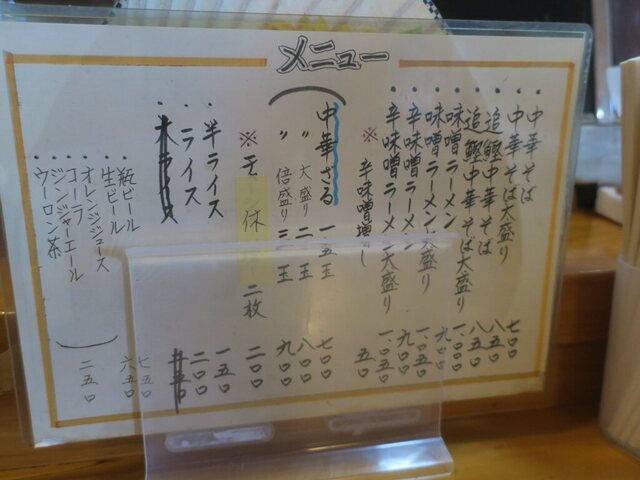 メニュー
・中華そば 七〇〇
・中華そば大盛り 八五〇
・追鰹中華そば 八五〇
・追鰹中華そば大盛り 一、〇〇〇
・味噌ラーメン 九〇〇
・味噌ラーメン大盛り 一、〇五〇
・辛味噌ラーメン 九〇〇
・辛味噌ラーメン大盛り 一、〇五〇
※ 辛味噌増し 五〇
中華ざる 一、五玉 七〇〇
〃 大盛り 二玉 八〇〇
〃 倍盛り 三玉 九〇〇
※ 二枚 二〇〇
・半ライス 一五〇
・ライス 二〇〇
・大ライス
・瓶ビール 七五〇
・生ビール 六五〇
・オレンジジュース
・コーラ
・ジンジャーエール
・ウーロン茶
二五〇